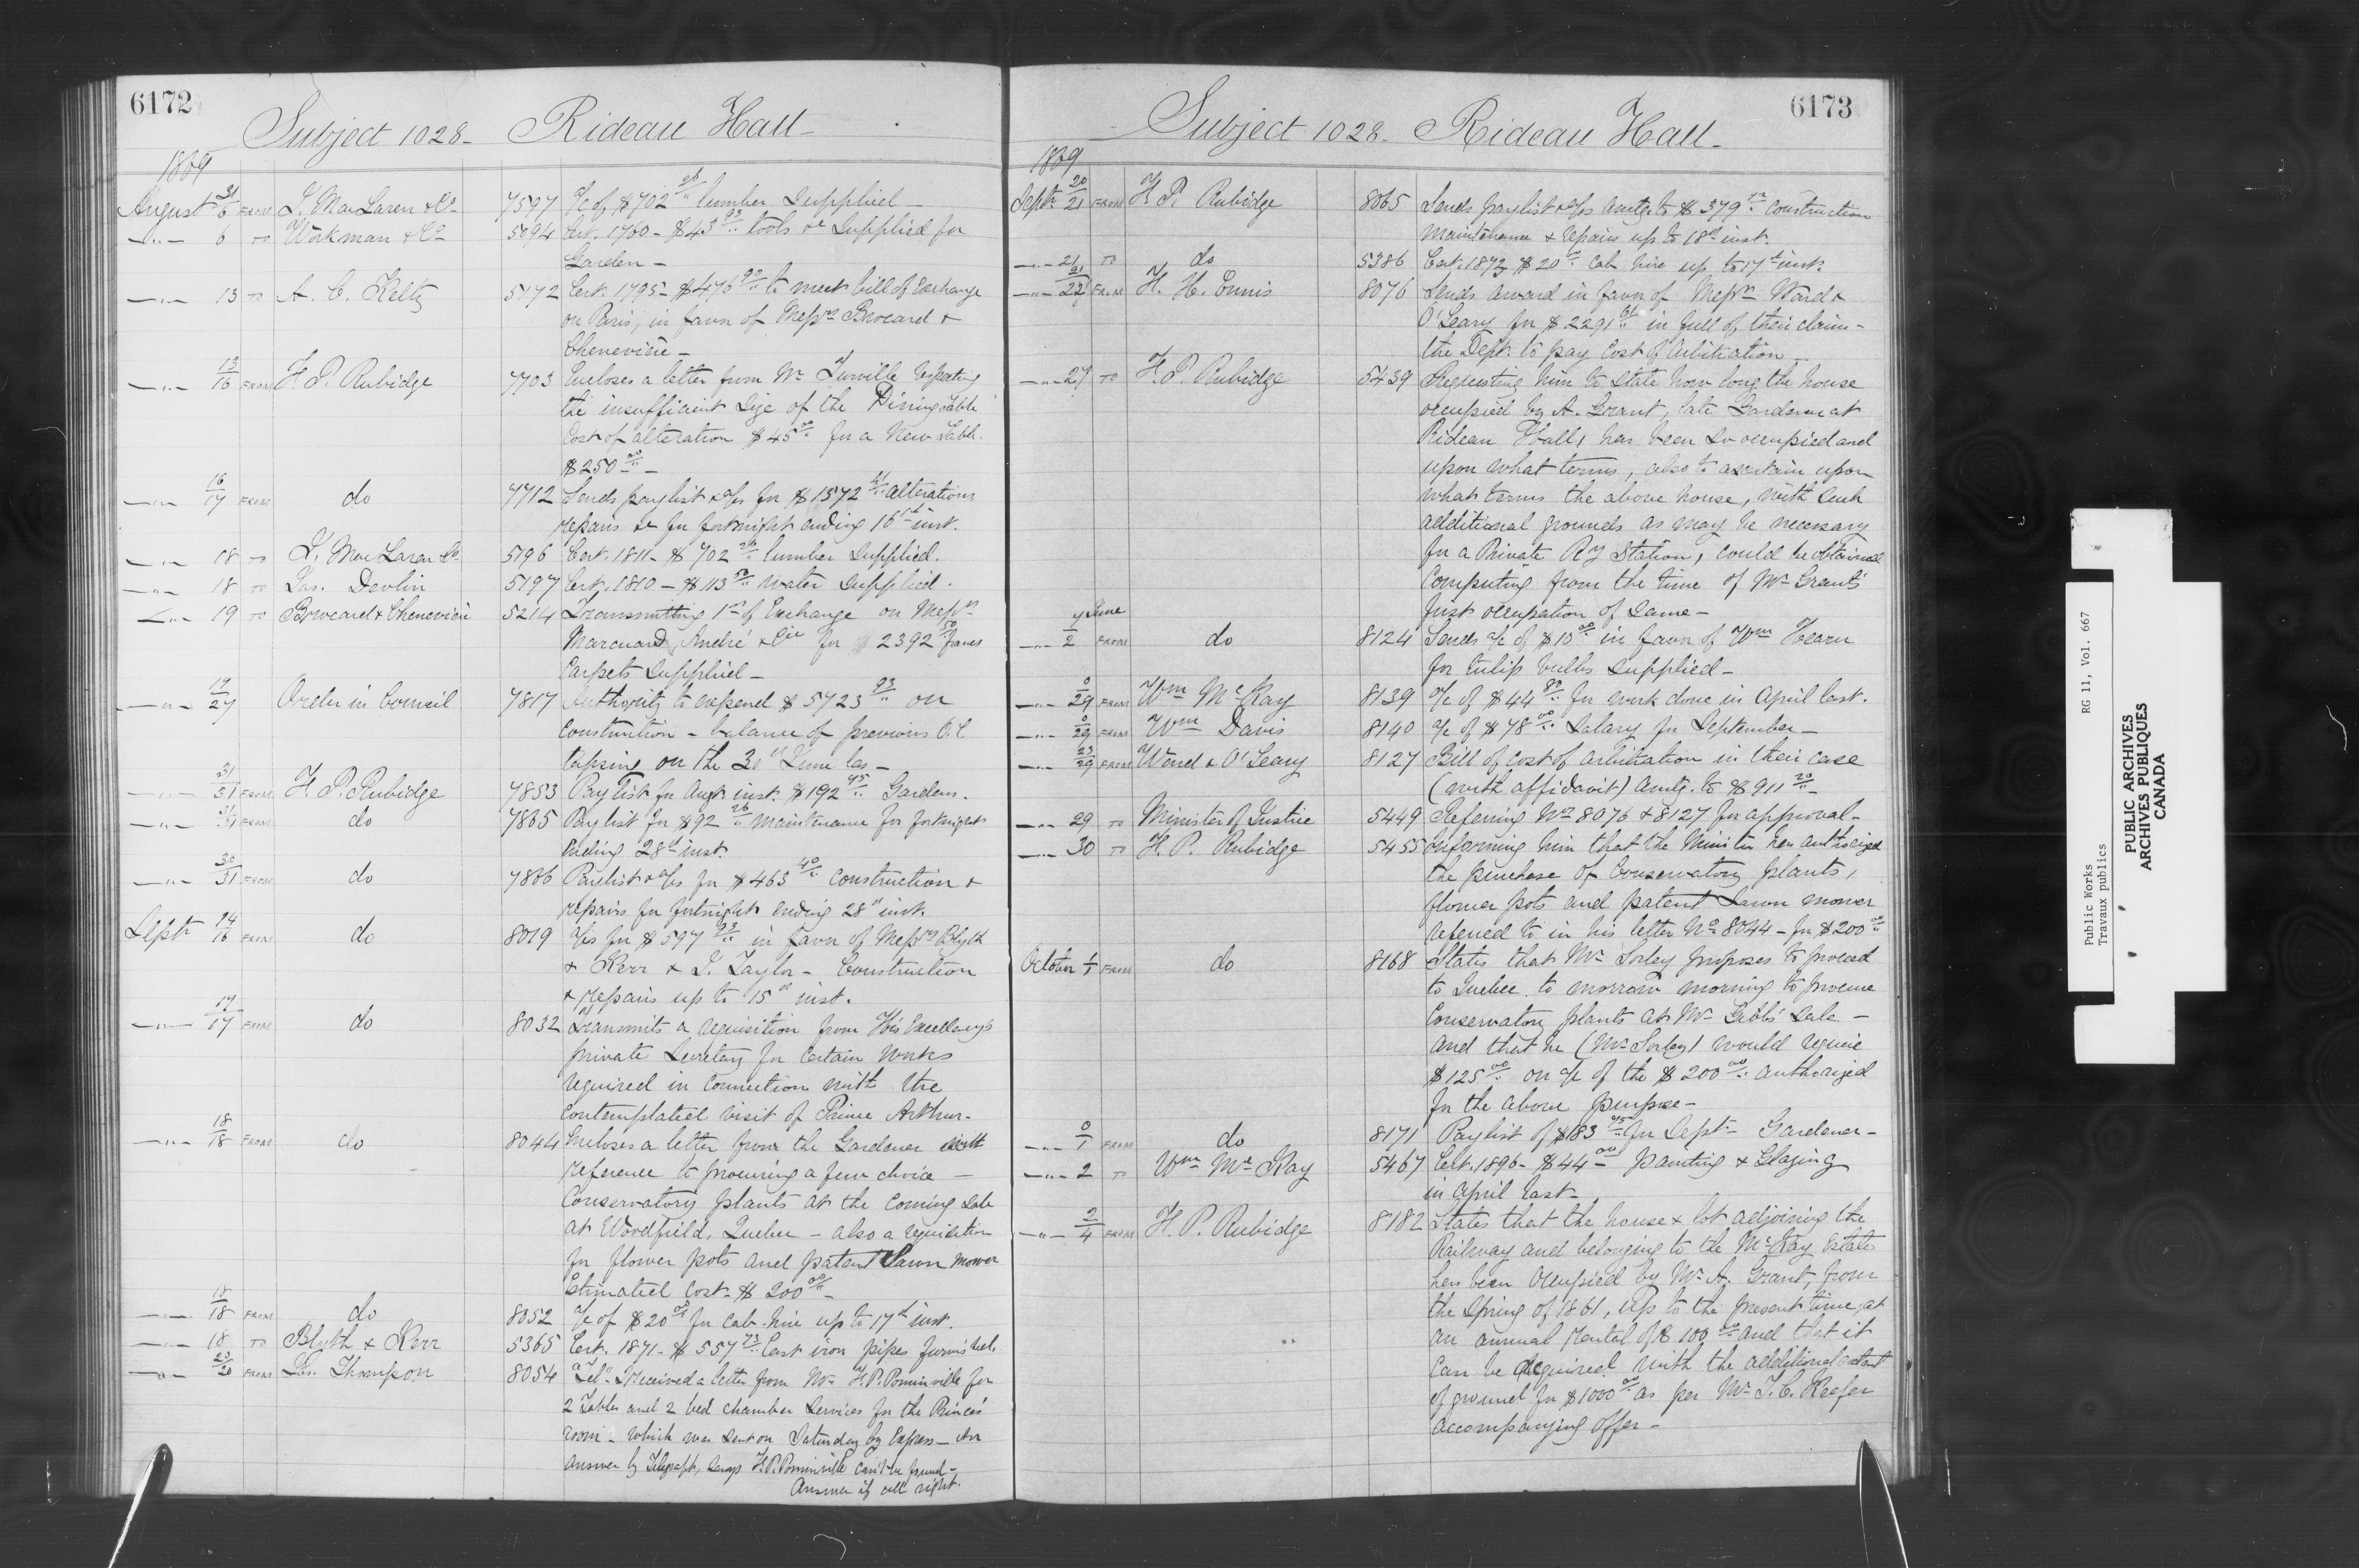 6172
Subject 1028 - Rideau Hall -
1869
August 31/6 FROM J. MacLaren & Co 7597 a/c of $702 26/.. lumber Supplied -
-"- 6 TO Workman & Co 5094 Cert. 1760 - $43 93/.. tools &c Supplied for
Garden -
-"- 13 TO A. C. Keltz 5172 Cert. 1795 - $476 90/.. to meet bill of Exchange
on Paris, in favor of Messrs Brocard &
Chenevière -
-"- 13/16 FROM F. P. Rubidge 7703 Encloses a letter from Mr Turville respecting
the insufficient Size of the Dining Table
Cost of alteration $45 00/.. for a New Table.
$250 00/.. -
-"- 16/17 FROM do 7712 Sends paylist & a/cs for $1572 alterations
repairs &c for fortnight ending 16th inst.
-"- 18 TO J. MacLaren Co 5196 Cert. 1811 - $702 26/.. lumber Supplied.
-"- 18 TO Jas. Devlin 5197 Cert. 1810 - $113 50/.. water Supplied.
-"- 19 TO Browcard & Chenevière 5214 Transmitting 1st of Exchange on Messrs
Marcuard, André & Cie for 2392 50 francs
Carpets Supplied -
-"- 19/27 Order in Council 7817 Authority to expend $5723 93/.. on
Construction - balance of previous O.C
lapsing on the 30th June las -
-"- 31/31 FROM F. P. Rubidge 7853 Paylist for Augt. inst. $192 75/.. Gardens.
-"- 31/31 FROM do 7865 Paylist for $92 26/.. Maintenance for fortnight
Ending 28th inst.
-"- 30/31 FROM do 7866 Paylist & a/cs for $463 40/.. Construction &
repairs for fortnight ending 28th inst.
Septr 14/16 FROM do 8019 a/cs for $597 93/.. in favor of Messrs Blyth
& Kerr & J. Taylor - Construction
& repairs up to 15th inst.
-"- 17/17 FROM do 8032 Transmits a requisition from His Excellency's
private Secretary for Certain Works
required in Connection with the
Contemplated visit of Prince Arthur -
-"- 18/18 FROM do 8044 Encloses a letter from the Gardener with
reference to procuring a few choice -
Conservatory plants at the Coming Sale
at Woodfield, Quebec - also a requisition
for flower pots and patent Lawn mower
Estimated Cost - $200 00/.. -
-"- 18/18 FROM do 8052 a/c of $20 00/.. for Cab-hire up to 17th inst.
-"- 18 TO Blyth & Kerr 5365 Cert. 1871 - $557 73/.. Cast iron pipes furnished.
-"- 20/20 FROM Jas. Thompson 8054 Tel. - I received a letter from Mr H. P. Pominville for
2 Tables and 2 bed chamber Services for the Prince's
room - which was sent on Saturday by Express - An
Answer by Telegraph, Says H. P. Pominville Can't be found -
Answer if all right.
6173
Subject 1028 - Rideau Hall -
1869
Septr 20/21 FROM F. P. Rubidge 8065 Sends paylist & a/cs amtg. to $379 Construction
Maintenance & repairs up to 18th inst.
-"- 21 TO do 5386 Cert. 1873 $20 00/.. Cab hire up to 17th inst.
-"- 21/22 FROM H. H. Ennis 8076 Sends award in favor of Messrs Ward &
O'Leary for $2291 61/.. in full of their claim -
the Dept. to pay Cost of Arbitration -
-"- 27 TO F. P. Rubidge 5439 Requesting him to state how long the house
occupied by A. Grant, late Gardener at
Rideau Hall, has been so occupied and
upon what terms, also to ascertain upon
what terms the above house, with such
additional grounds as may be necessary
for a Private Ry Station, could be obtained
Computing from the time of Mr Grant's
first occupation of Same -
-"- 7 June/2 FROM do 8124 Sends a/c of $10 00/.. in favor of Wm Hearn
for tulip bulbs Supplied -
-"- 0/29 FROM Wm McKay 8139 a/c of $44 80/.. for work done in April last.
-"- 0/29 FROM Wm Davis 8140 a/c of $78 00/.. Salary for September -
-"- 23/29 FROM Ward & O'Leary 8127 Bill of Cost of Arbitration in their Case
(with affidavit) amtg. to $911 20/.. -
-"- 29 TO Minister of Justice 5449 Referring Nos 8076 & 8127 for approval -
-"- 30 TO F. P. Rubidge 5455 Informing him that the Minister has authorized
the purchase of Conservatory plants,
flower pots and patent Lawn mower
referred to in his letter No 8044 - for $200 00/..
October 1/1 FROM do 8168 States that Mr Sorley proposes to proceed
to Quebec to morrow morning to procure
Conservatory plants at Mr Gibb's Sale -
and that he (Mr Sorley) would require
$125 00/.. on a/c of the $200 00/.. authorized
for the above purpose -
-"- 0/1 FROM do 8171 Paylist of $183 75/.. for Septr - Gardener -
-"- 2 TO Wm McKay 5467 Cert. 1896 - $44 00/.. - painting & Glazing
in April last -
-"- 2/4 FROM F. P. Rubidge 8182 States that the house & lot adjoining the
Railway and belonging to the McKay Estate
has been Occupied by Mr A. Grant, from
the Spring of 1861, up to the present time, at
an annual rental of $100 00/.. and that it
Can be acquired with the additional extent
of ground for $1000 00/.. as per Mr T. C. Keefer
accompanying Offer -
Public Works
Travaux publics
RG 11, Vol. 667
PUBLIC ARCHIVES
ARCHIVES PUBLIQUES
CANADA